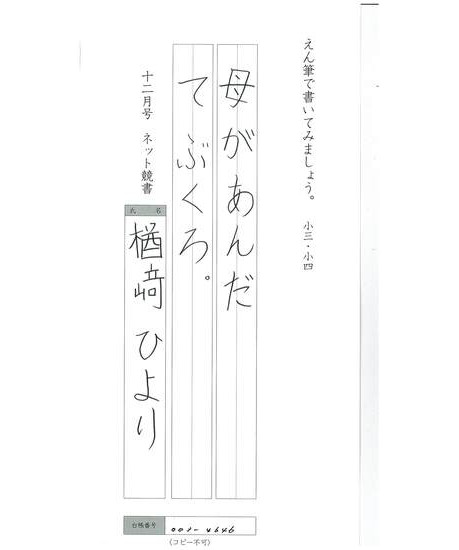 えん筆で書いてみましょう。 小三・小四
母があんだ
てぶくろ。
十二月号 ネット競書
氏 名
楢﨑 ひより
台帳番号
001-4646
(コピー不可)